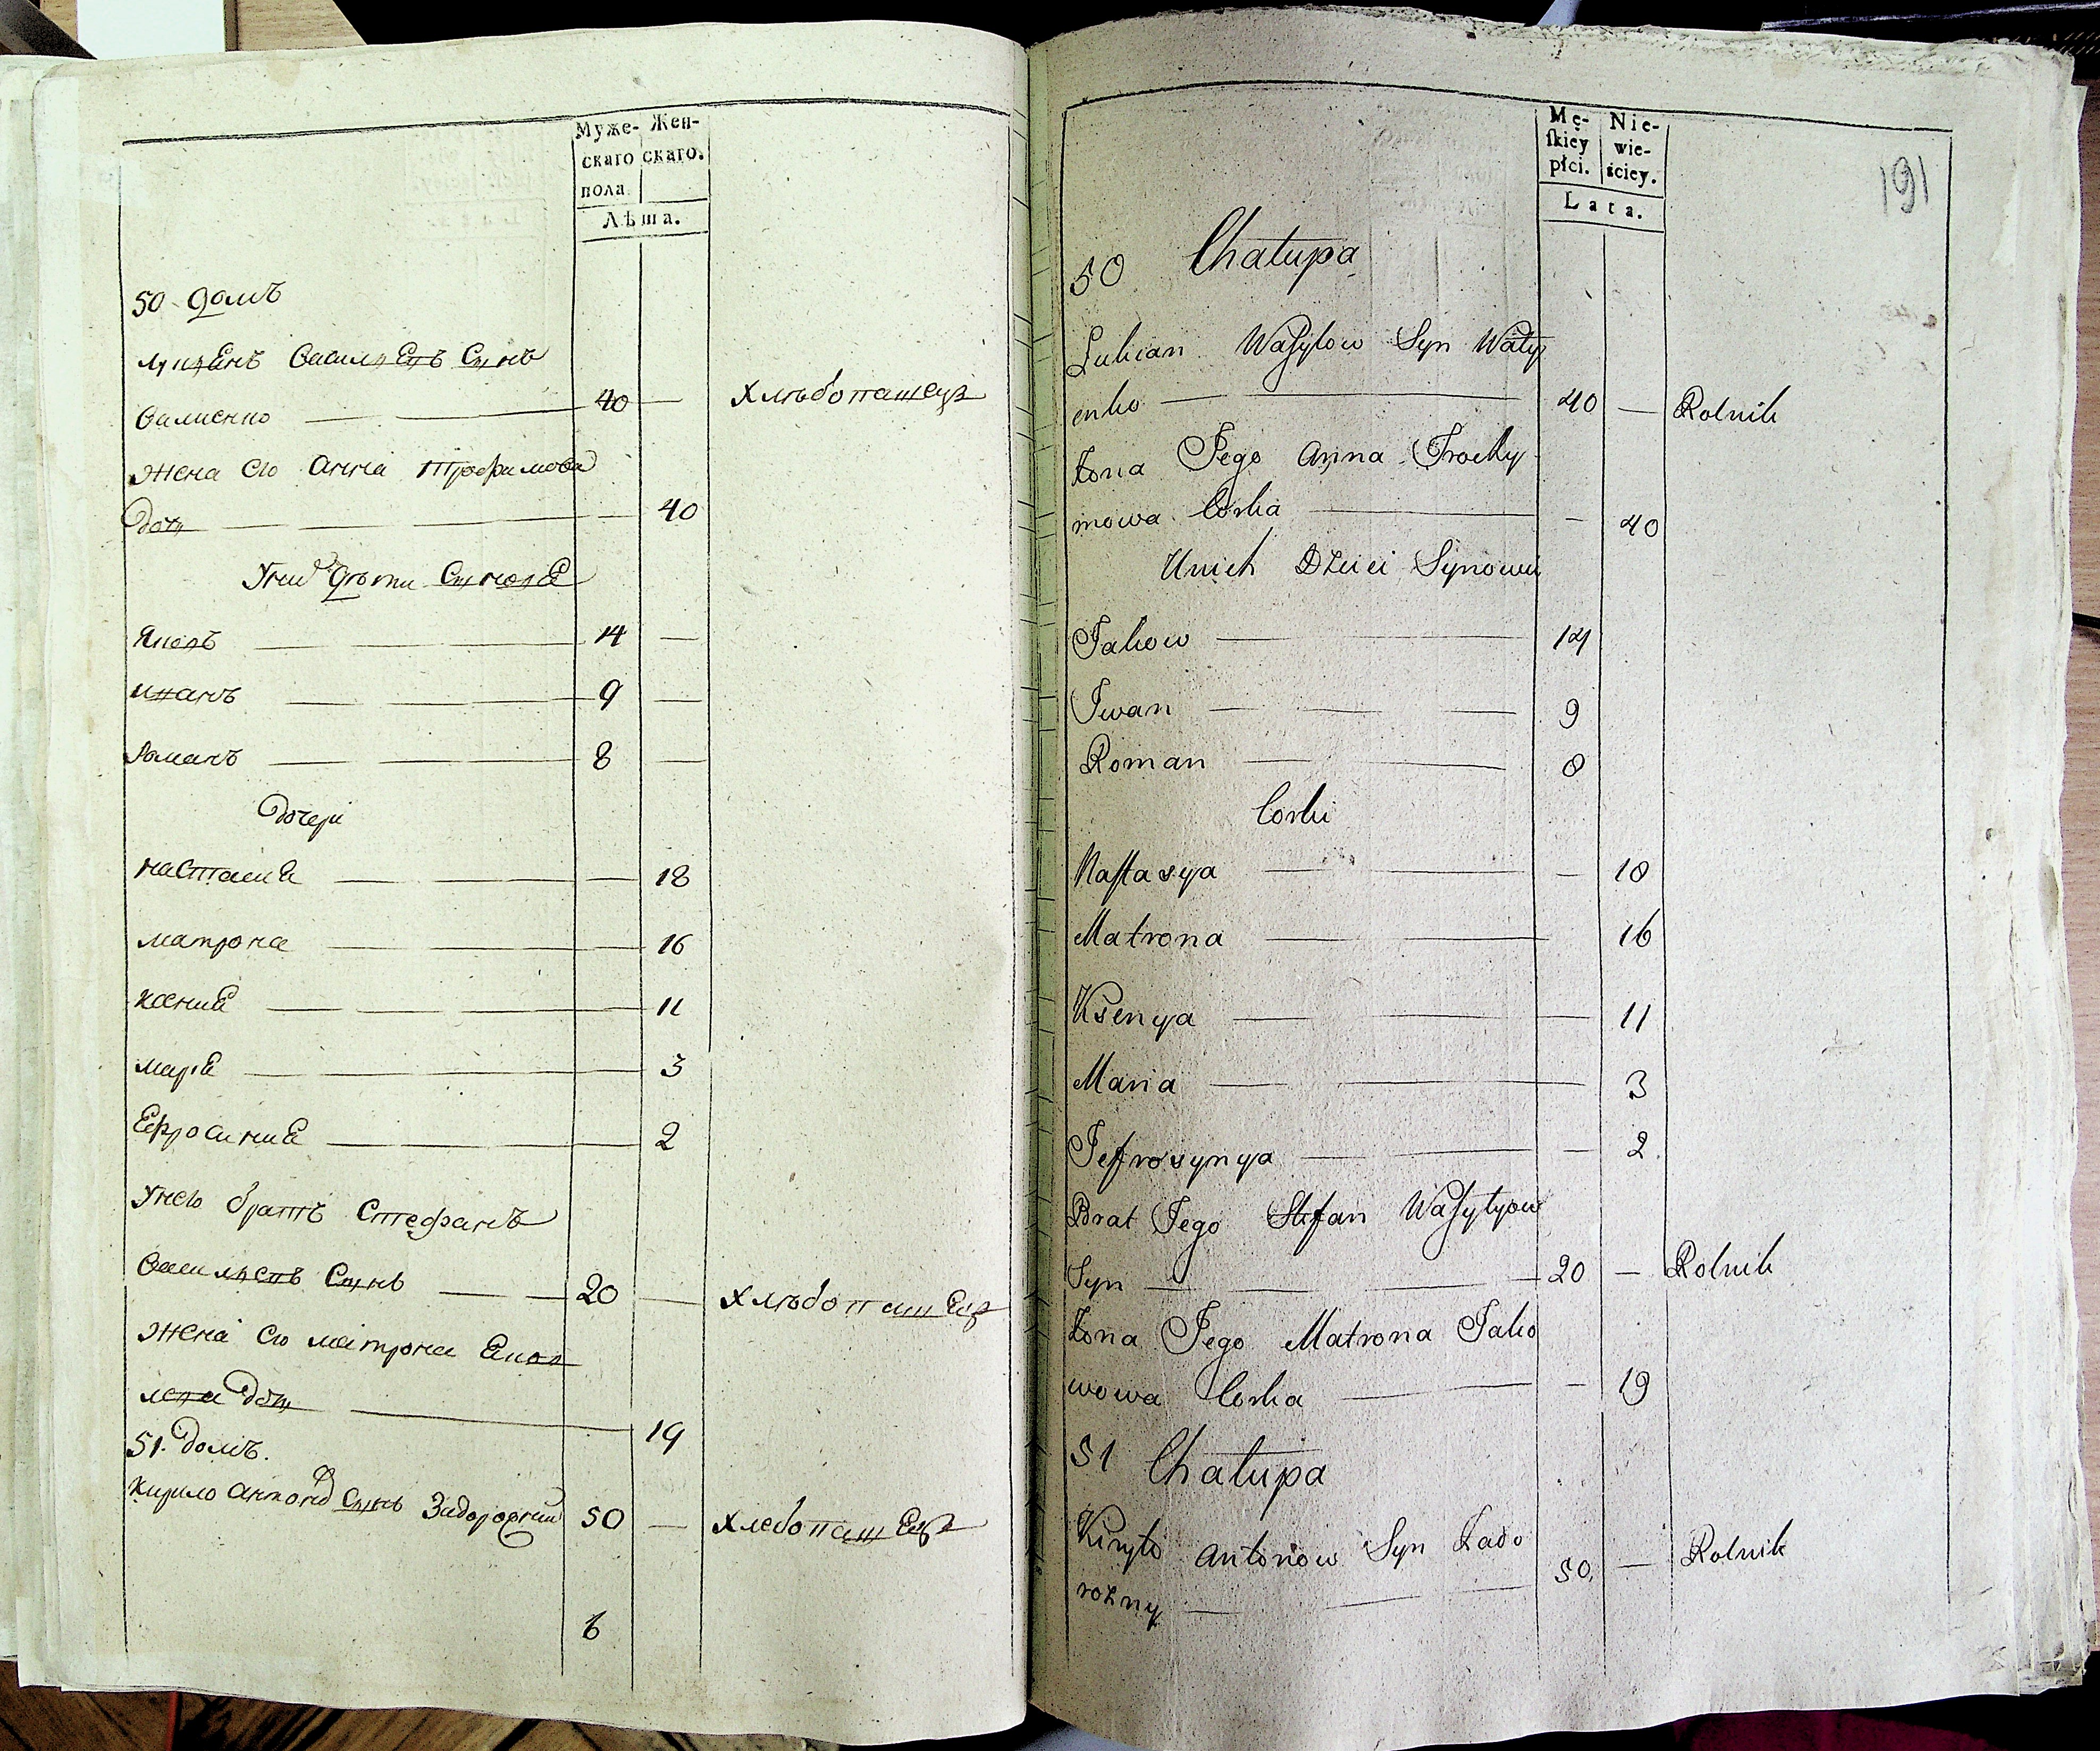 Муже- Жен-
скаго скаго.
пола
Лѣта.
50 домъ
Лукянъ Васильевъ Сынъ
Валиенко 40 — Хлѣбопашецъ
Жена его Анна Трофимова
Дочь — 40
У них дѣти Сыновя
Яковъ 14 —
Иванъ 9 —
Романъ 8 —
Дочери
Настасия — 18
Матрона 16
Ксения 11
Мария 3
Ефросиния 2
У него братъ Стефанъ
Васильевъ Сынъ 20 — Хлѣбопашецъ
Жена его Матрона
дочь 19
51. Домъ.
Кирило Антоно Сынъ Задорожни 50 — Хлебопашецъ
6
191
Mę- Nie-
ſkiey wie-
płci. ściey.
Lata.
50 Chałupa
Lukian Waſylow Syn Waly
enko 40 — Rolnik
Żona Jego Anna Trochy
mowa Corka — 40
Unich Dzieci Synowie
Jakow 14
Iwan 9
Roman 8
Corki
Naſtasya — 18
Matrona 16
Ksenya 11
Maria 3
Jefrosynya — 2
Brat Jego Stefan Waſylyow
Syn 20 — Rolnik
Żona Jego Matrona Jako
wowa Corka — 19
51 Chałupa
Kiryło Antonow Syn Zado
rożny 50. — Rolnik